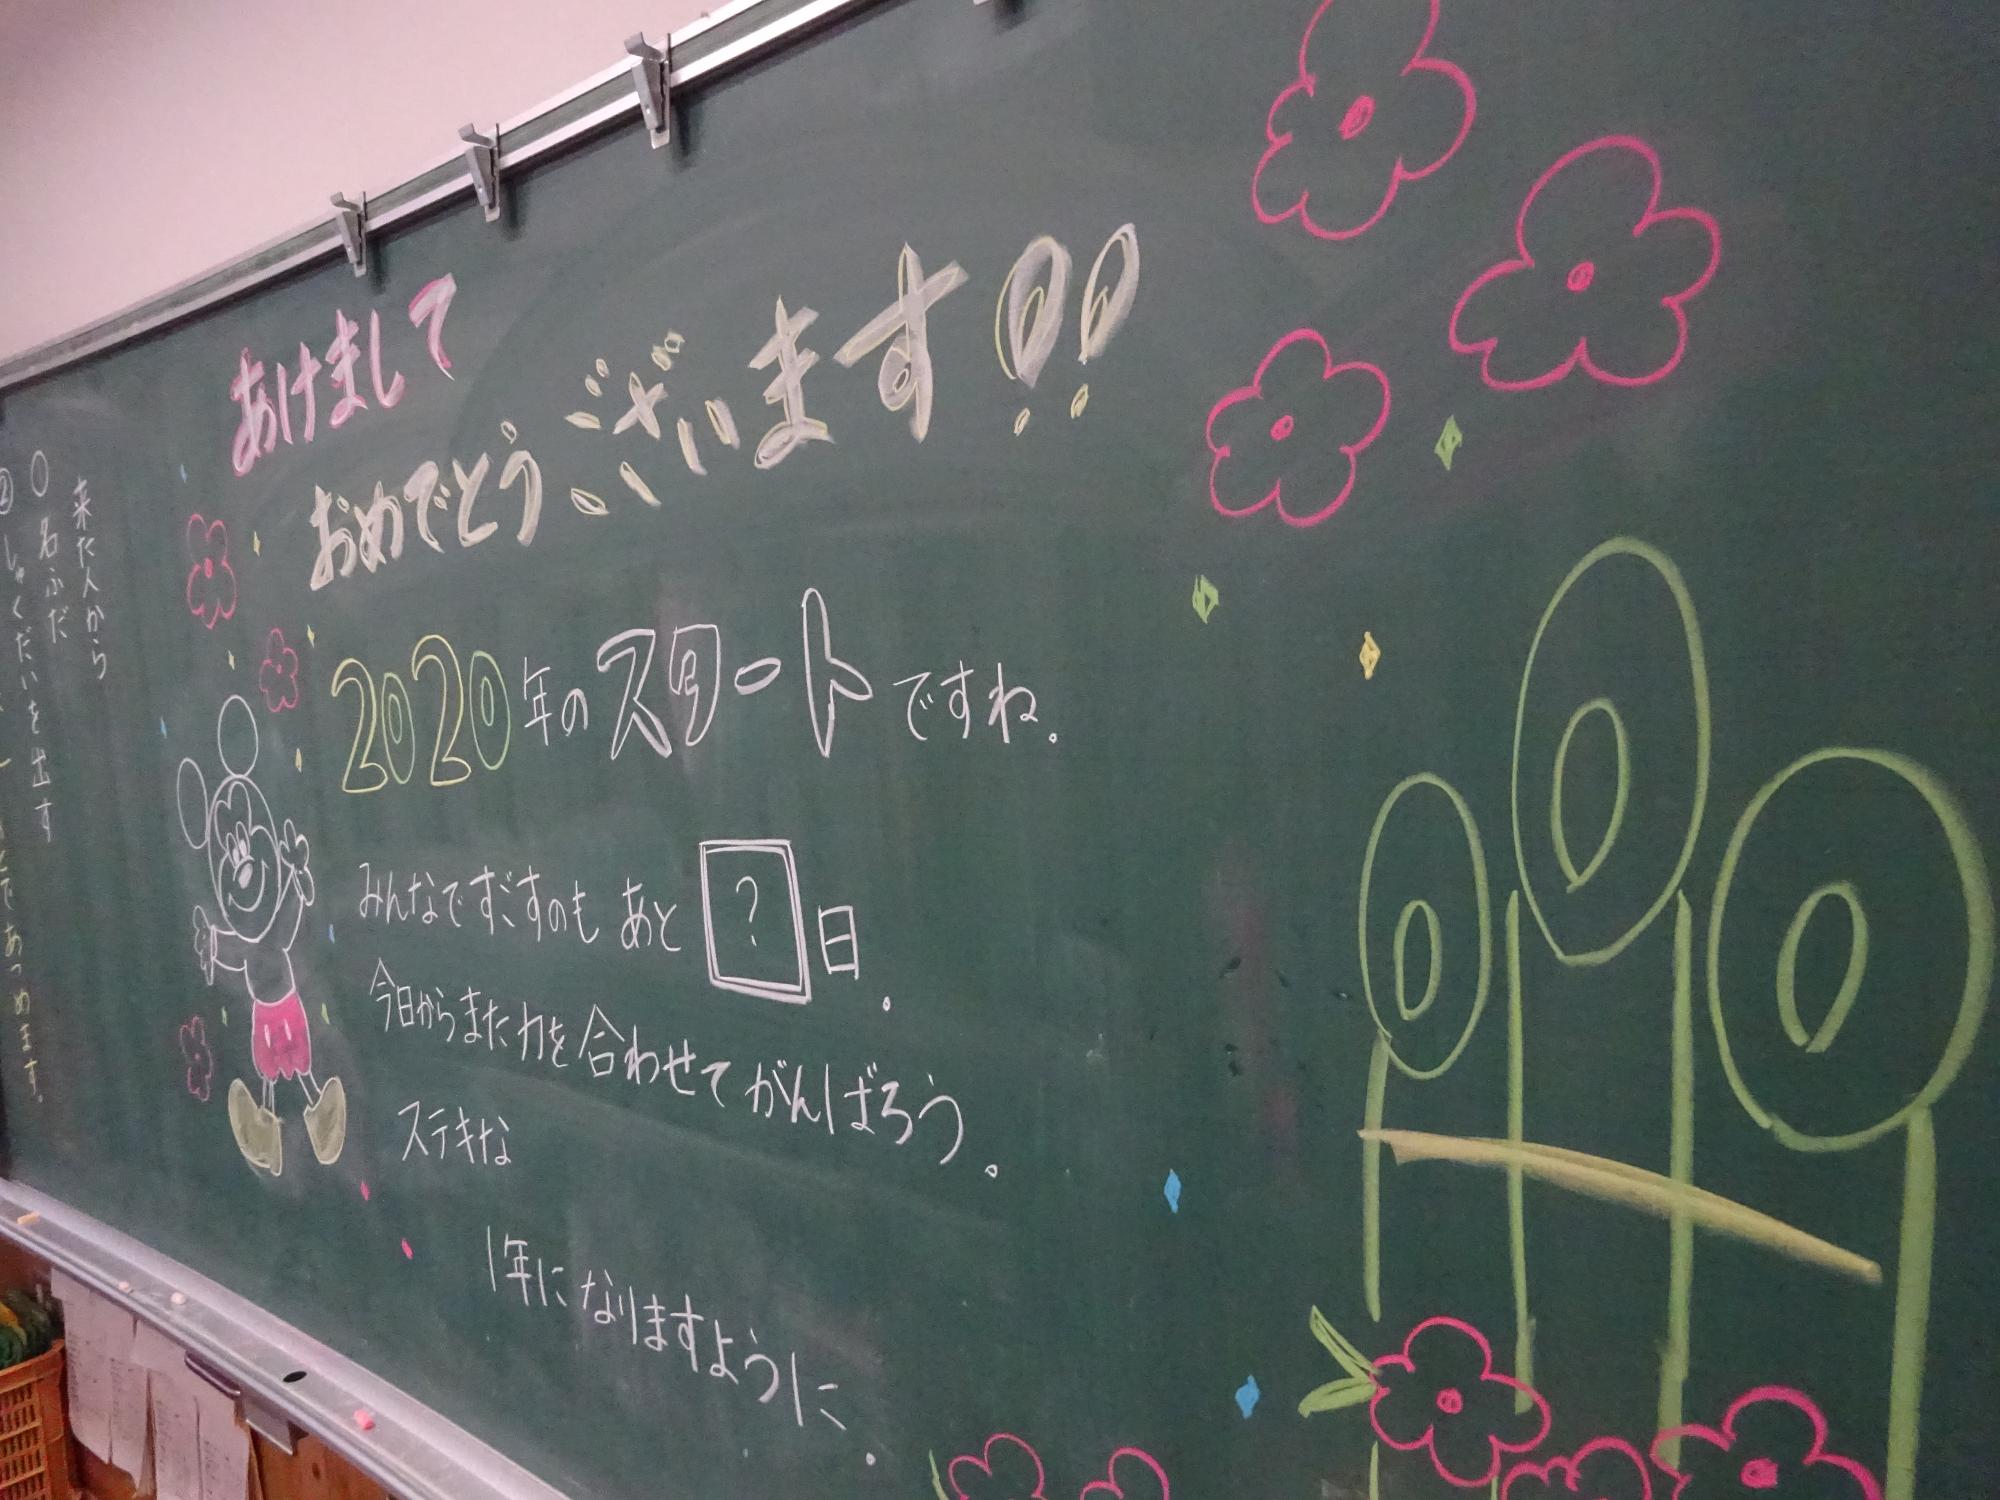 あけまして
おめでとうございます!!
2020年のスタートですね。
みんなですごすのも あと ? 日。
今日からまた力を合わせてがんばろう。
ステキな
1年になりますように。
来た人から
○名ふだ
②しゅくだいを出す
あつめます。